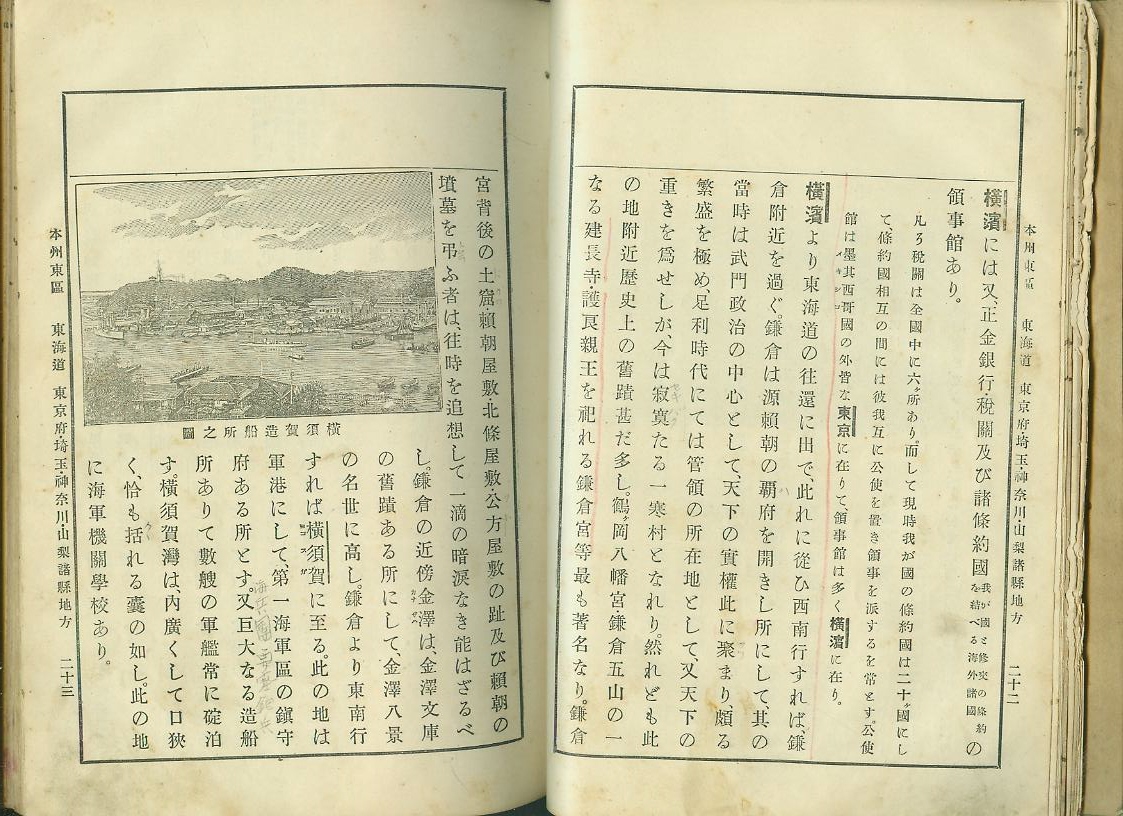 本州東區　東海道　東京府・埼玉・神奈川・山梨諸縣地方　二十二
橫濱には又、正金銀行・稅關及び諸條約國我が國と修交の條約を結べる海外諸國。の
領事館あり。
凡ろ稅關は全國中に六ヶ所あり、而して現時我が國の條約國は二十ヶ國にし
て、條約國相互の間には彼我互に公使を置き領事を派するを常とす。公使
館は墨其西哥國の外皆な東京に在りて、領事館は多く橫濱に在り。
メキシコ
橫濱より東海道の往還に出で、此れに從ひ西南行すれば、鎌
倉附近を過ぐ。鎌倉は源賴朝の覇府を開きし所にして、其の
當時は武門政治の中心として、天下の實權此に聚まり、頗る
繁盛を極め、足利時代にては管領の所在地として、又天下の
重きを爲せしが、今は寂寞たる一寒村となれり。然れども此
の地附近歷史上の舊蹟甚だ多し。鶴ヶ岡八幡宮・鎌倉五山の一
なる建長寺・護良親王を祀れる鎌倉宮等最も著名なり。鎌倉
宮背後の土窟、賴朝屋敷・北條屋敷・公方屋敷の趾及び賴朝の
墳墓を弔ふ者は、往時を追想して一滴の暗淚なき能はざるべ
し。鎌倉の近傍金澤は、金澤文庫
の舊蹟ある所にして、金澤八景
の名世に高し。鎌倉より東南行
すれば橫須賀に至る。此の地は
軍港にして、第一海軍區の鎭守
府ある所とす。又巨大なる造船
所ありて數艘の軍艦常に碇泊
す。橫須賀灣は、內廣くして口狹
く、恰も括れる囊の如し。此の地
に海軍機關學校あり。
橫須賀造船所之圖
本州東區　東海道　東京府・埼玉・神奈川・山梨諸縣地方　二十三